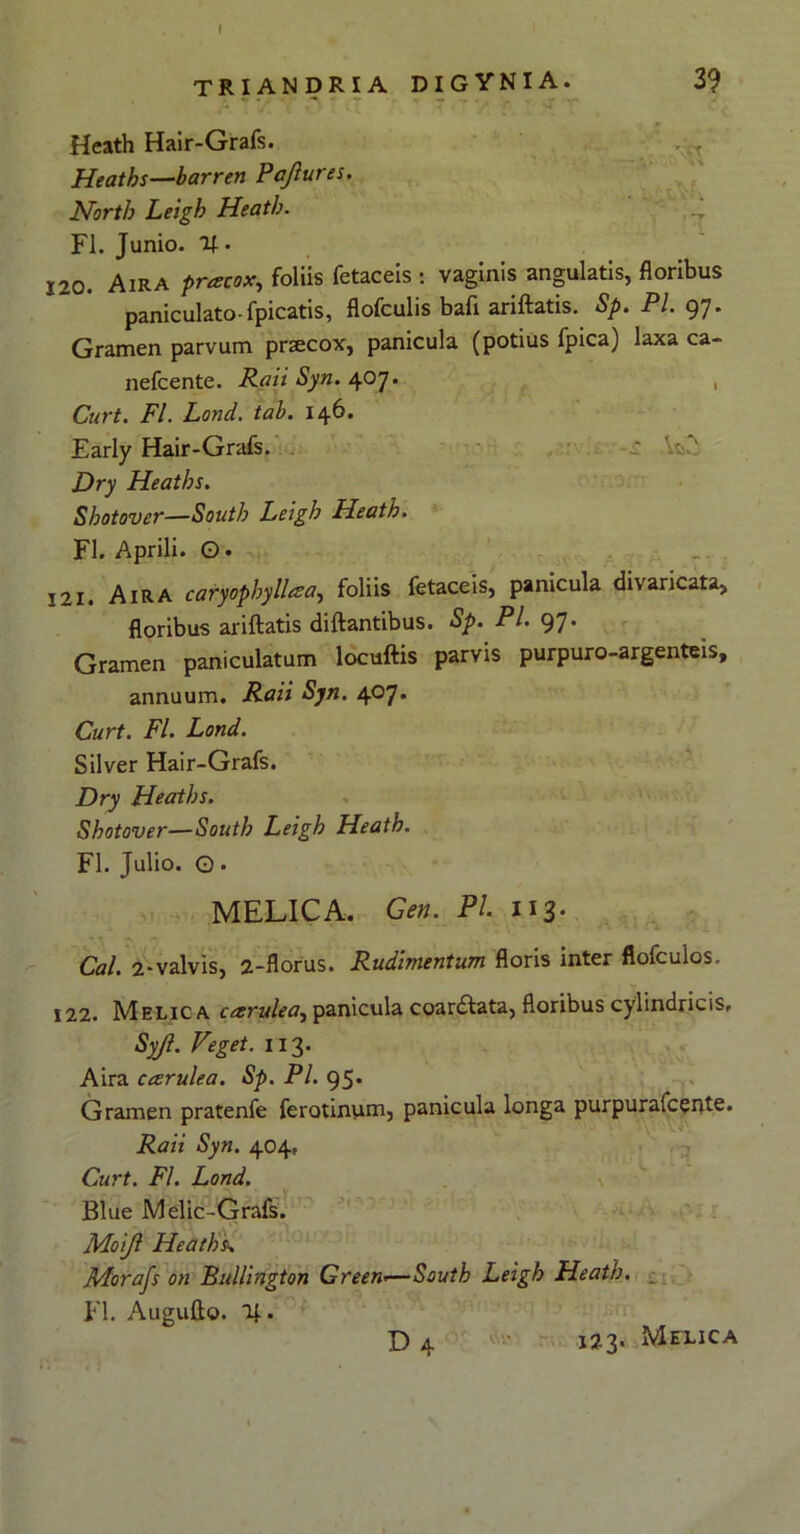 TRIANDRIA DIGYNIA. 39
Heath Hair-Graſs.
Heaths—barren Paſtures.
North Leigh Heath.
Fl. Junio. ♃.
120. AIRA præcox, foliis ſetaceis: vaginis angulatis, floribus
paniculato-ſpicatis, floſculis baſi ariſtatis. Sp. Pl. 97.
Gramen parvum præcox, panicula (potius ſpica) laxa ca-
neſcente. Raii Syn. 407.
Curt. Fl. Lond. tab. 146.
Early Hair-Graſs.
Dry Heaths.
Shotover—South Leigh Heath.
Fl. Aprili. ☉.
121. AIRA caryophyllæa, foliis ſetaceis, panicula divaricata,
floribus ariſtatis diſtantibus. Sp. Pl. 97.
Gramen paniculatum locuſtis parvis purpuro-argenteis,
annuum. Raii Syn. 407.
Curt. Fl. Lond.
Silver Hair-Graſs.
Dry Heaths.
Shotover—South Leigh Heath.
Fl. Julio. ☉.
MELICA. Gen. Pl. 113.
Cal. 2-valvis, 2-florus. Rudimentum floris inter floſculos.
122. MELICA cærulea, panicula coarctata, floribus cylindricis,
Syſt. Veget. 113.
Aira cærulea. Sp. Pl. 95.
Gramen pratenſe ſerotinum, panicula longa purpuraſcente.
Raii Syn. 404,
Curt. Fl. Lond.
Blue Melic-Graſs.
Moiſt Heaths.
Moraſs on Bullington Green—South Leigh Heath.
Fl. Auguſto. ♃.
D 4 123. MELICA